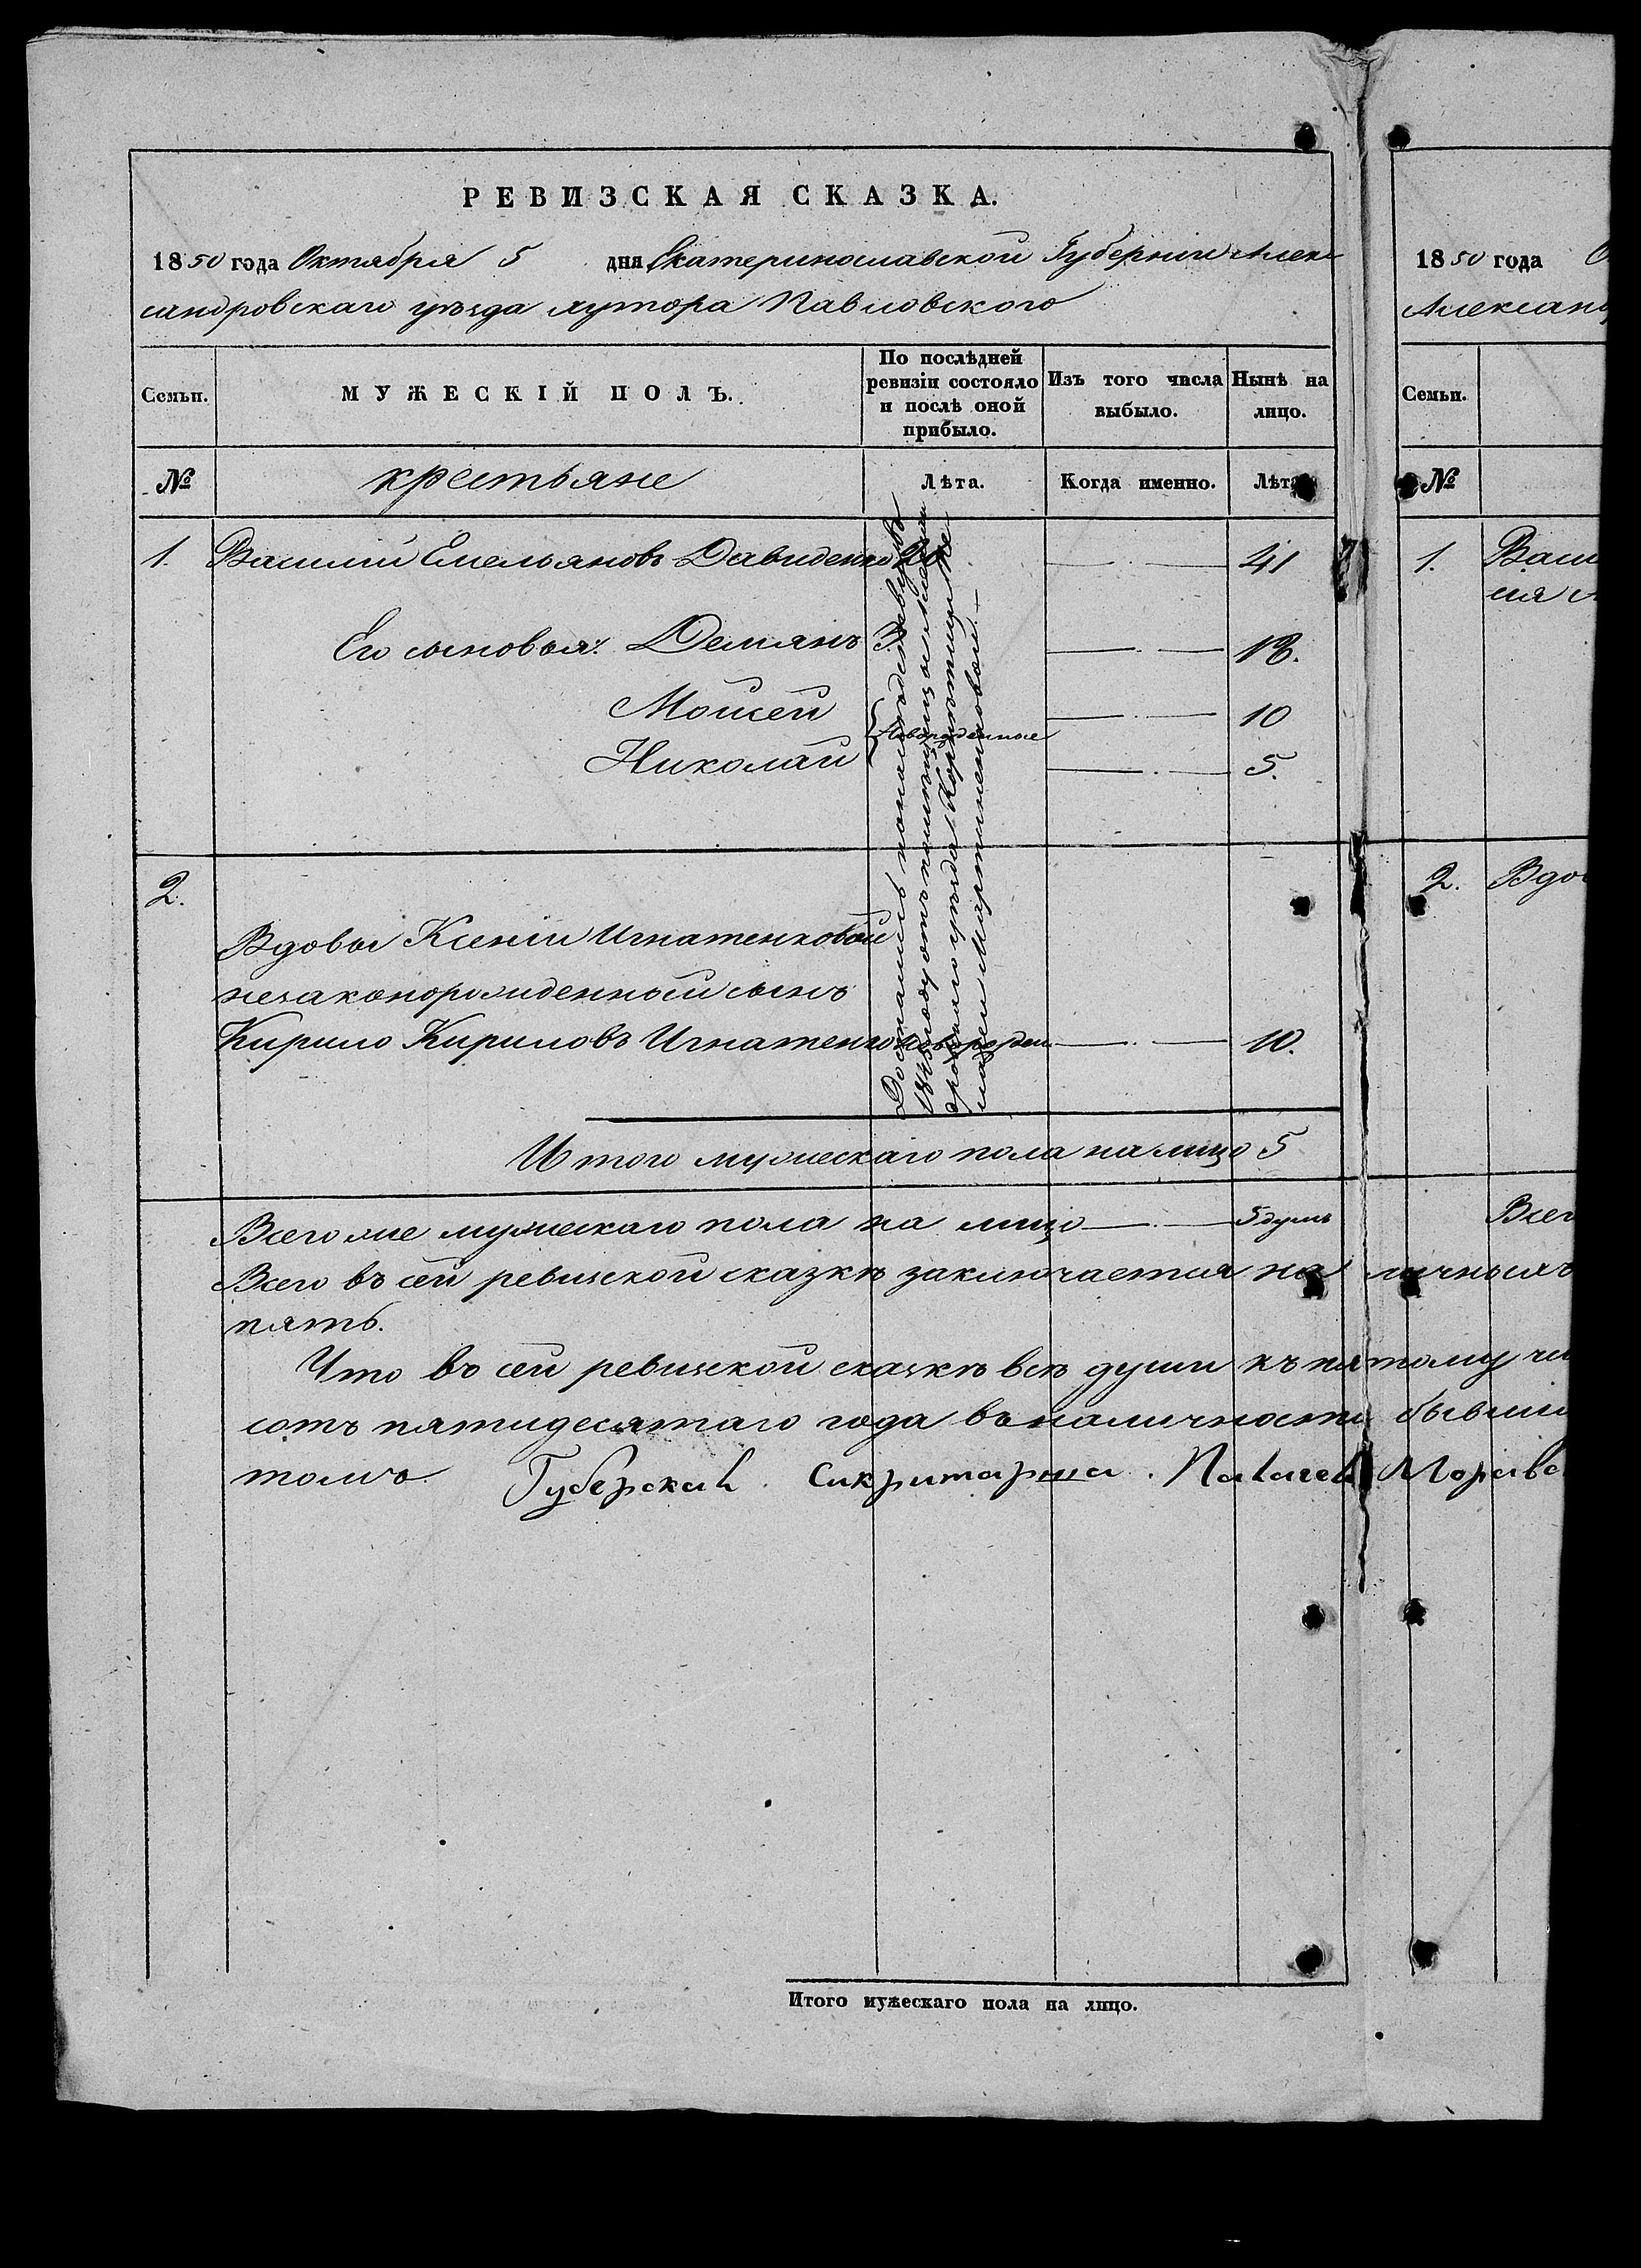 РЕВИЗСКАЯ СКАЗКА.
1850 года Октября 5 дня Екатеринославской Губерніи Алек
сандровскаго уѣзда хутора Павловского
Семьи.
МУЖЕСКІЙ ПОЛЪ.
По послѣдней ревизіи состояло и послѣ оной прибыло.
Изъ того числа выбыло.
Нынѣ на лицо.
№
крестьяне
Лѣта.
Когда именно.
Лѣта
1. Василий Емельяновъ Давиденко 41
Его сыновья: Демянъ 3. 18.
Мойсей 10
Новорожденные
Николай 5.
2.
Вдовы Ксеніи Игнатенковой
незаконорожденный сынъ
Кирило Кириловъ Игнатенко новорожден 10.
Достались по
1845 году отъ помѣщицы
уѣзда
Мартиненковой.—
Итого мужескаго пола на лицо 5
Всего же мужескаго пола на лицо 5 душъ
Всего въ сей ревизской сказкѣ заключается на личныхъ
пять.
Что въ сей ревизской сказкѣ всѣ души къ пятому чи
сотъ пятидесятаго года въ наличности бывши
томъ. Губерская Сикритарша
Итого мужескаго пола на лицо.
1850 года О
Александ
Семьи.
№
1. Васи
2. Вдо
Всег